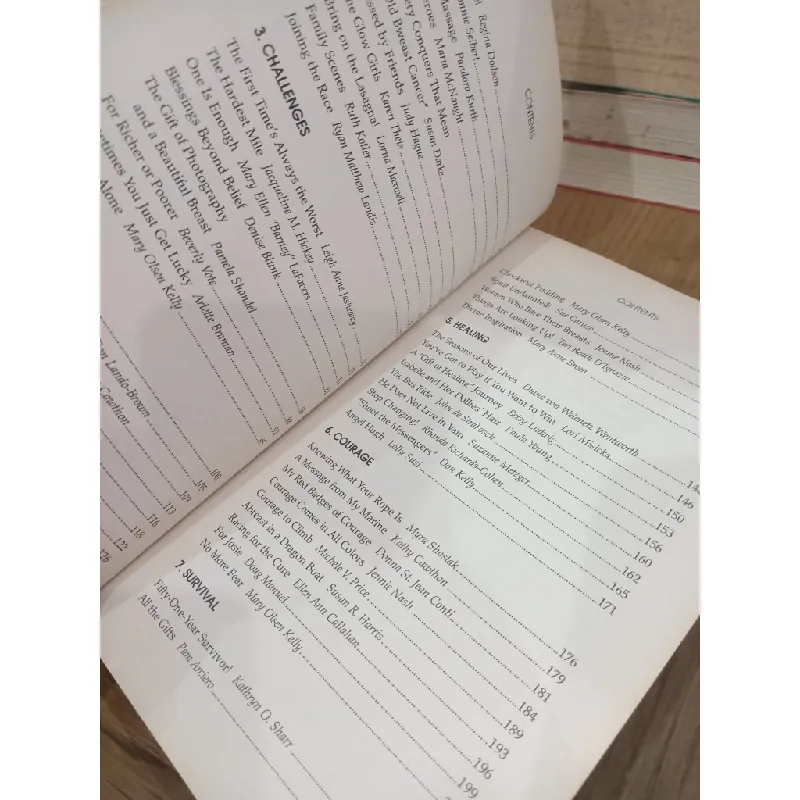 CONTENTS
Regina Dodson
Massage Pandora Kurth
Heroes Maria McNaught
Conquers That Mean
Old Bweast Cancer" Susan Durke
Blessed by Friends Judy Hague
The Glow Girls Karen Theis
Bring on the Lasagna! Lorna Maxwell
Family Scenes Ruth Kotler
Joining the Race Ryan Matthew Landis
3. CHALLENGES
The First Time's Always the Worst Leigh Anne Jasheway
The Hardest Mile Jacqueline M. Hickey
One Is Enough Mary Ellen "Barnzy" LaFavers
Blessings Beyond Belief Denise Blank
The Gift of Photography
and a Beautiful Breast Pamela Shandel
For Richer or Poorer Beverly Vote
Sometimes You Just Get Lucky Arlette Braman
Alone Mary Olsen Kelly
Lando-Brown
Cawthon
100
105
109
113
116
118
122
126
CONTENTS
Checkout Pudding Mary Olsen Kelly
Spirit Unclaunted! Sue
Women Who Bare Their Breasts Jennie Nash
Things Are Looking Up! Teri Reath D'Ignazio
Divine Inspiration Mary Anne Breen
5. HEALING
The Seasons of Our Lives Diana von Welanetz Wentworth
You've Got to Play If You Want to Win Lori Misicka
A "Gift of Healing" Journey Betsy Ludwig 146
Isabelle and Her Dollies' Hair Paula Young 150
The Bus Ride John de Strakosch 153
He Does Not Live in Vain Suzanne Metzger 156
Stop Changing! Rhonda Richards-Cohen 160
"Shoot the Messengers" Don Kelly 162
Angel Hush Lolly Susi 165
171
6. COURAGE
Knowing What Your Rope Is Mara Shostak
A Message from My Marine Kathy Cawthon
My Red Badges of Courage Donna St. Jean Conti 176
Courage Comes in All Colors Jennie Nash 179
Courage to Climb Michele V. Price 181
Abreast in a Dragon Boat Susan R. Harris 184
Racing for the Cure Ellen Ann Callahan 189
For Josie Doug Manuel 193
No More Fear Mary Olsen Kelly 196
199
7. SURVIVAL
Fifty-One Year Survivor! Kathryn O. Sharr
All the Gifts Pam Arciero